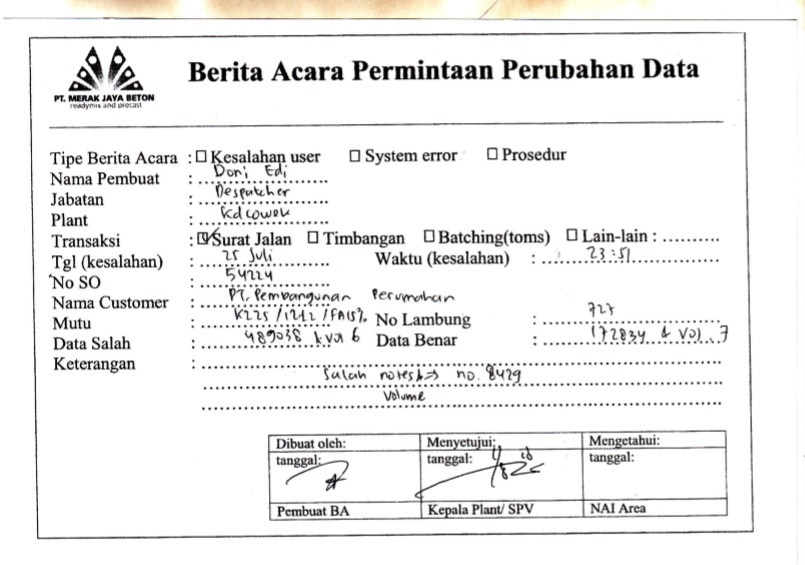 Berita Acara Permintaan Perubahan Data
PT. MERAK JAYA BETON
readymix and precast
Tipe Berita Acara : ☐ Kesalahan user ☐ System error ☐ Prosedur
Nama Pembuat : Doni Edi
Jabatan : Despatcher
Plant : Kdcowek
Transaksi : ☑ Surat Jalan ☐ Timbangan ☐ Batching(toms) ☐ Lain-lain : ..........
Tgl (kesalahan) : 25 Juli Waktu (kesalahan) : 23:51
No SO : 54224
Nama Customer : PT. Pembangunan Perumahan
Mutu : K225 /12±2 /FA15% No Lambung : 727
Data Salah : 489038 & vol 6 Data Benar : 172834 & vol. 7
Keterangan : Salah notes => no. 8429
Volume
Dibuat oleh: Menyetujui: Mengetahui:
tanggal: tanggal: tanggal:
Pembuat BA Kepala Plant/ SPV NAI Area